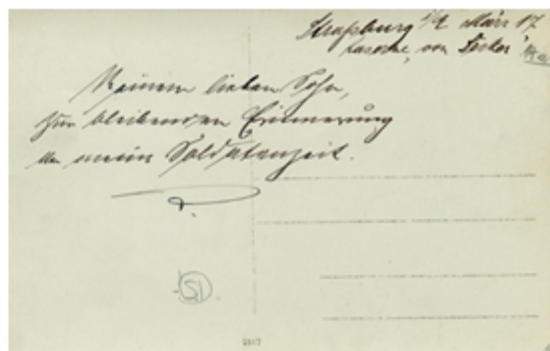 Straßburg 1/2 März 17
Kaserne "von Decker"
Meinem lieben Sohn,
zur bleibenden Erinnerung
an meine Soldatenzeit.
51